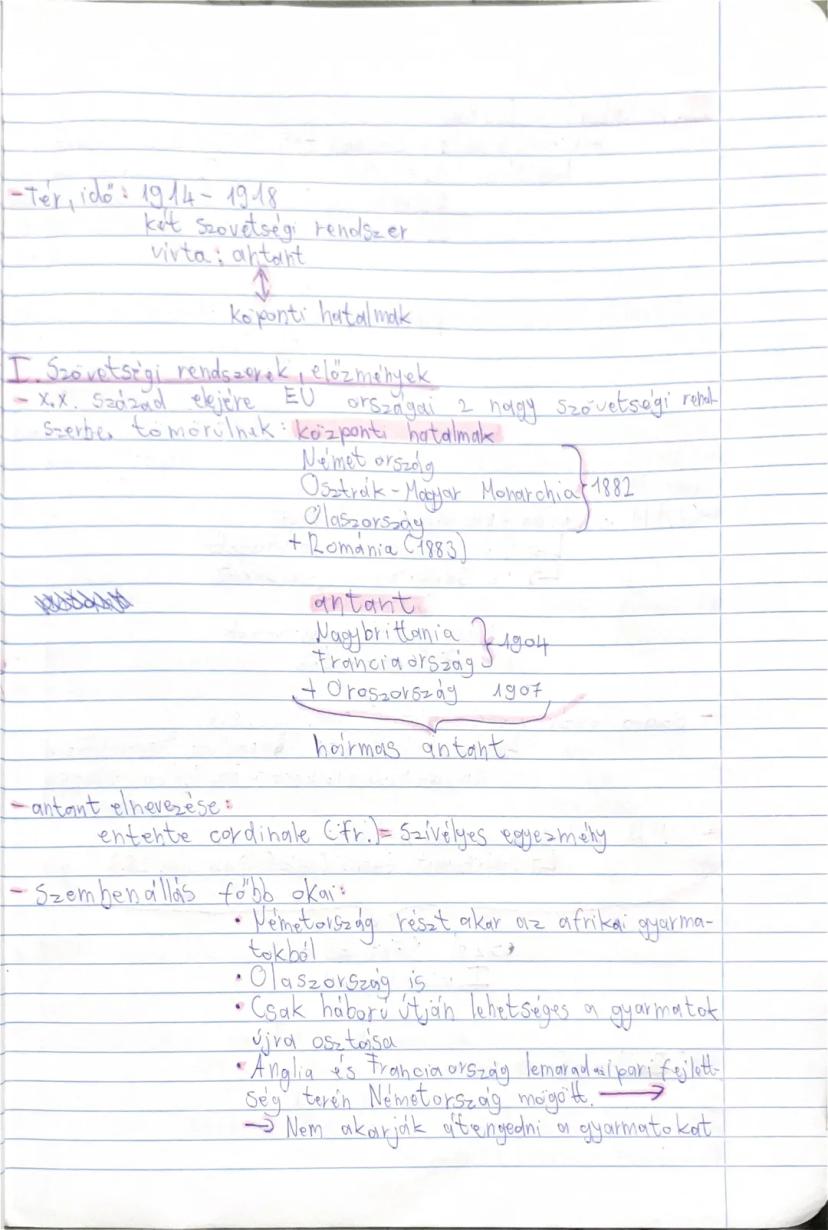 - Tér, idő: 1914 - 1918
két szövetségi rendszer
vívta: antant
↕
központi hatalmak
I. Szövetségi rendszerek, előzmények
- x.x. század elejére EU országai 2 nagy szövetségi rend-
szerbe tömörülnek: központi hatalmak
Németország
Osztrák-Magyar Monarchia } 1882
Olaszország
+ Románia (1883)
antant
Nagybrittania } 1904
Franciaország
+ Oroszország 1907
hármas antant
- antant elnevezése:
entente cordinale (fr.) = Szívélyes egyezmény
- Szembenállás főbb okai:
• Németország részt akar az afrikai gyarma-
tokból
• Olaszország is
• Csak háború útján lehetséges a gyarmatok
újra osztása
• Anglia és Franciaország lemarad ipari fejlett-
ség terén Németország mögött. →
→ Nem akarják átengedni a gyarmatokat